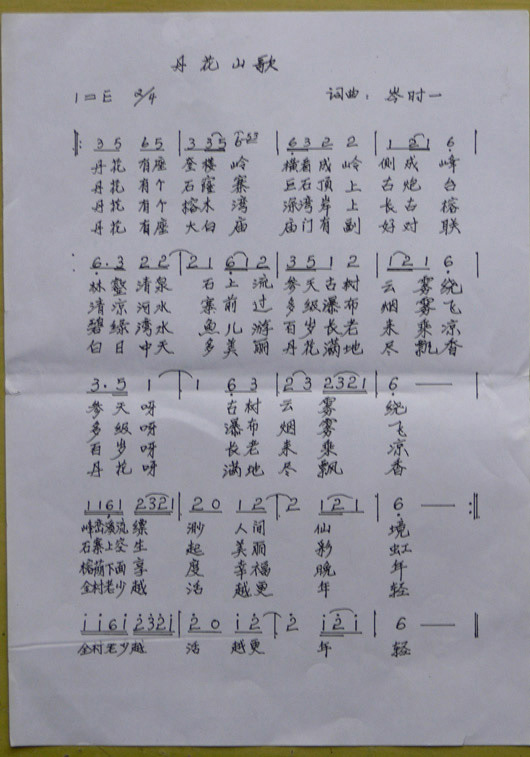 丹花山歌
1=E 2/4 词曲：岑时一
3 5 6 5 | 3 3 5 6 5 3 | 6 3 2 2 | 1 2 1 6 |
丹花 有座 登楼 岭 横看成岭 侧成 峰
丹花 有个 石 寨 巨石顶上 古炮 台
丹花 有个 榕木 湾 深湾岸上 长古 榕
丹花 有座 大白 庙 庙门有副 好对 联
6·3 2 2 | 2 1 6 1 2 | 3 5 1 2 | 1 2 1 6 |
林壑清泉 石上流 参天古树 云雾绕
清凉河水 寨前过 多级瀑布 烟雾飞
碧绿湾水 鱼儿游 百岁长老 来乘凉
白日中天 多美丽 丹花满地 尽飘香
3·5 1 | 1 6 3 | 2 3 2 3 2 1 | 6 — |
参天呀 古树 云 雾 绕
多级呀 瀑布 烟 雾 飞
百岁呀 长老 来 乘 凉
丹花呀 满地 尽 飘 香
1 1 6 1 2 3 2 1 | 2 0 1 2 | 2 1 2 1 | 6 — :||
峰峦溪流 缥 渺 人间 仙 境
石寨上空 生 起 美丽 彩 虹
榕荫下面 享 度 幸福 晚 年
全村老少 越 活 越更 年 轻
i i 6 i 2 3 2 i | 2 0 i 2 | 2 i 2 i | 6 — ||
全村老少 越 活 越更 年 轻